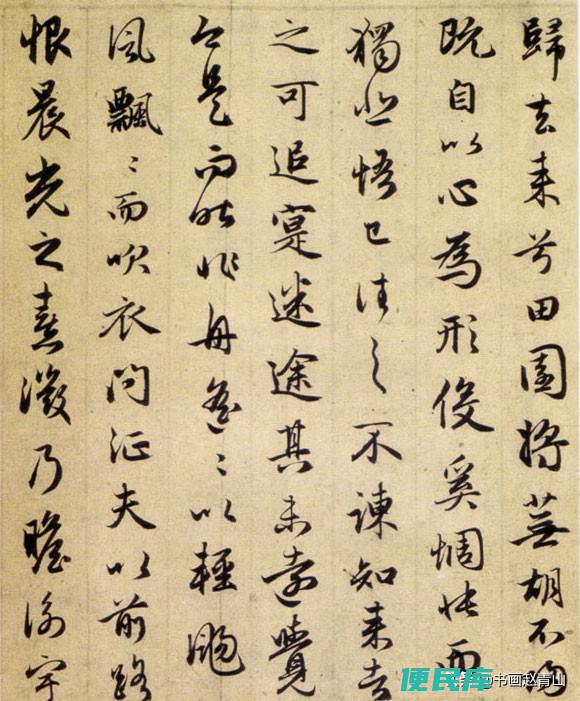 歸去来兮田園將蕪胡不歸
既自以心為形役奚惆悵而
獨悲悟已往之不諫知来者
之可追寔迷途其未遠覺
今是而昨非舟遥〻以輕颺
風飄〻而吹衣問征夫以前路
恨晨光之熹微乃瞻衡宇
@书画赵青山
便民库